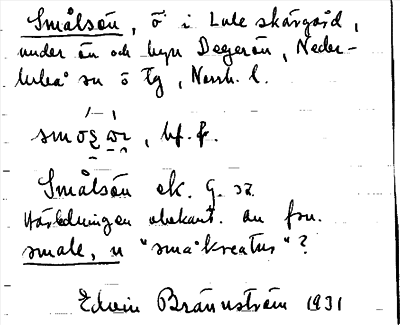 Smålsön, ö i Lule skärgård,
under ön och byn Degerön, Neder-
luleå sn ö tg, Norrb. l.
bf. fr.
Smålsön ek. G.
Härledningen obekant. an fsv.
smale, n "småkreatur"?
Edvin Brännström 1931